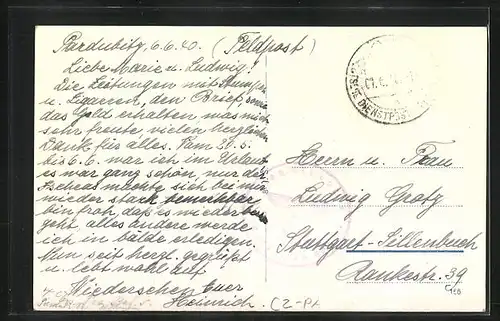 Pardubitz, 6.6.40. (Feldpost)
Liebe Marie u. Ludwig!
Die Zeitungen mit
u. Zigarren, den Brief sowie
das Geld erhalten was mich
sehr freute, vielen herzlichen
Dank für alles. Vom 20.5.
bis 6.6. war ich im Urlaub
es war ganz schön, nur das
machte sich bei mir
wieder stark bemerkbar
bin froh, daß es wieder
geht, alles andere werde
ich in bälde erledigen.
Nun seit herzl. gegrüßt
u. lebt wohl auf
Wiedersehen Euer
Heinrich.
C2-PA
DEUTSCHE DIENSTPOST
Herrn u. Frau
Ludwig Grotz
Stuttgart-Sillenbuch
Rankestr. 39